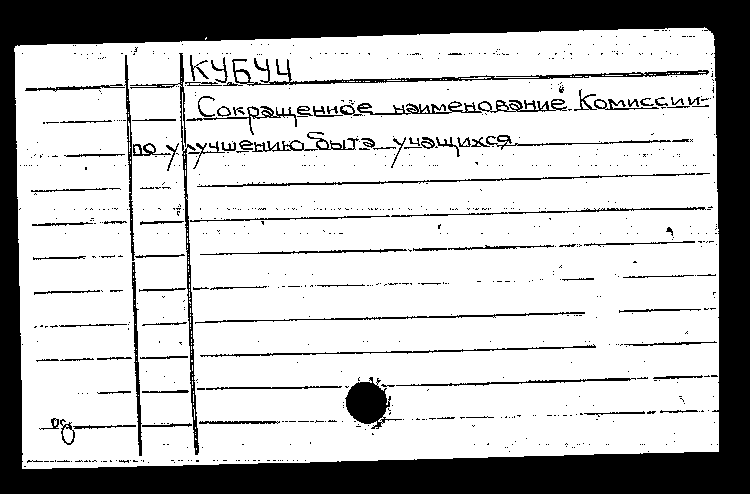 КУБУЧ
Сокращенное наименование Комиссии
по улучшению быта учащихся.